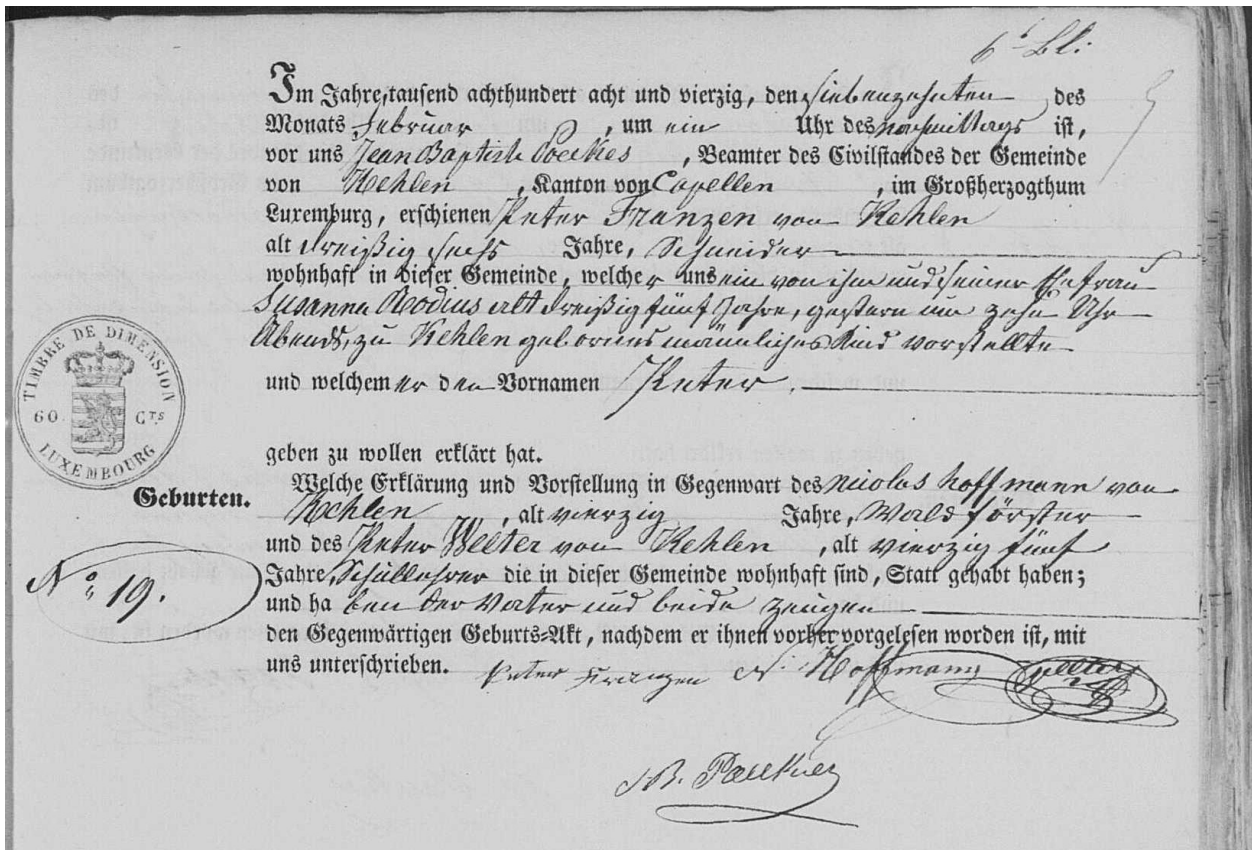 6s Bl.
Im Jahre, tausend achthundert acht und vierzig, den siebenzehnten des
Monats Februar, um ein Uhr des nachmittags ist,
vor uns Jean Baptiste, Beamter des Civilstandes der Gemeinde
von Kehlen, Kanton von Capellen, im Großherzogthum
Luxemburg, erschienen Peter Franzen von Kehlen
alt dreißig sechs Jahre, Schneider
wohnhaft in dieser Gemeinde, welcher uns ein von ihm und seiner Ehefrau
Susanna Rodius alt dreißig fünf Jahre, gestern um zehn Uhr
Abends, zu Kehlen gebornes männliches Kind vorstellte
und welchem er den Vornamen Peter.
geben zu wollen erklärt hat.
Welche Erklärung und Vorstellung in Gegenwart des Nicolas Hoffmann von
Geburten.
Kehlen, alt vierzig Jahre, Waldförster
und des Peter Welter von Kehlen, alt vierzig fünf
Jahre, Schullehrer die in dieser Gemeinde wohnhaft sind, Statt gehabt haben;
No 19.
und haben der Vater und beide Zeugen
den Gegenwärtigen Geburts-Akt, nachdem er ihnen vorher vorgelesen worden ist, mit
uns unterschrieben. Peter Franzen N. Hoffmann Welter
TIMBRE DE DIMENSION
60. CTS
LUXEMBOURG